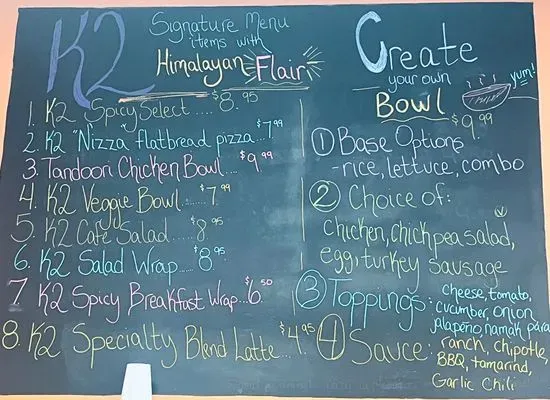 K2
Signature Menu
items with
Himalayan Flair
1. K2 Spicy Select.... $8.95
2. K2 "Nizza flatbread pizza..$7.99
3. Tandoori Chicken Bowl....$9.99
4. K2 Veggie Bowl.......$7.99
5. K2 Café Salad.....$8.95
6. K2 Salad Wrap....$8.95
7 K2 Spicy Breakfast Wrap..$6.50
8. K2 Specialty Blend Latte...$4.95
Create
your own
Bowl
yum!
$9.99
① Base Options
- rice, lettuce, combo
② Choice of:
chicken, chickpea salad,
egg, turkey sausage
③ Toppings: cheese, tomato,
cucumber, onion
jalapeño, namak para
④ Sauce: ranch, chipotle,
BBQ, tamarind,
Garlic Chili